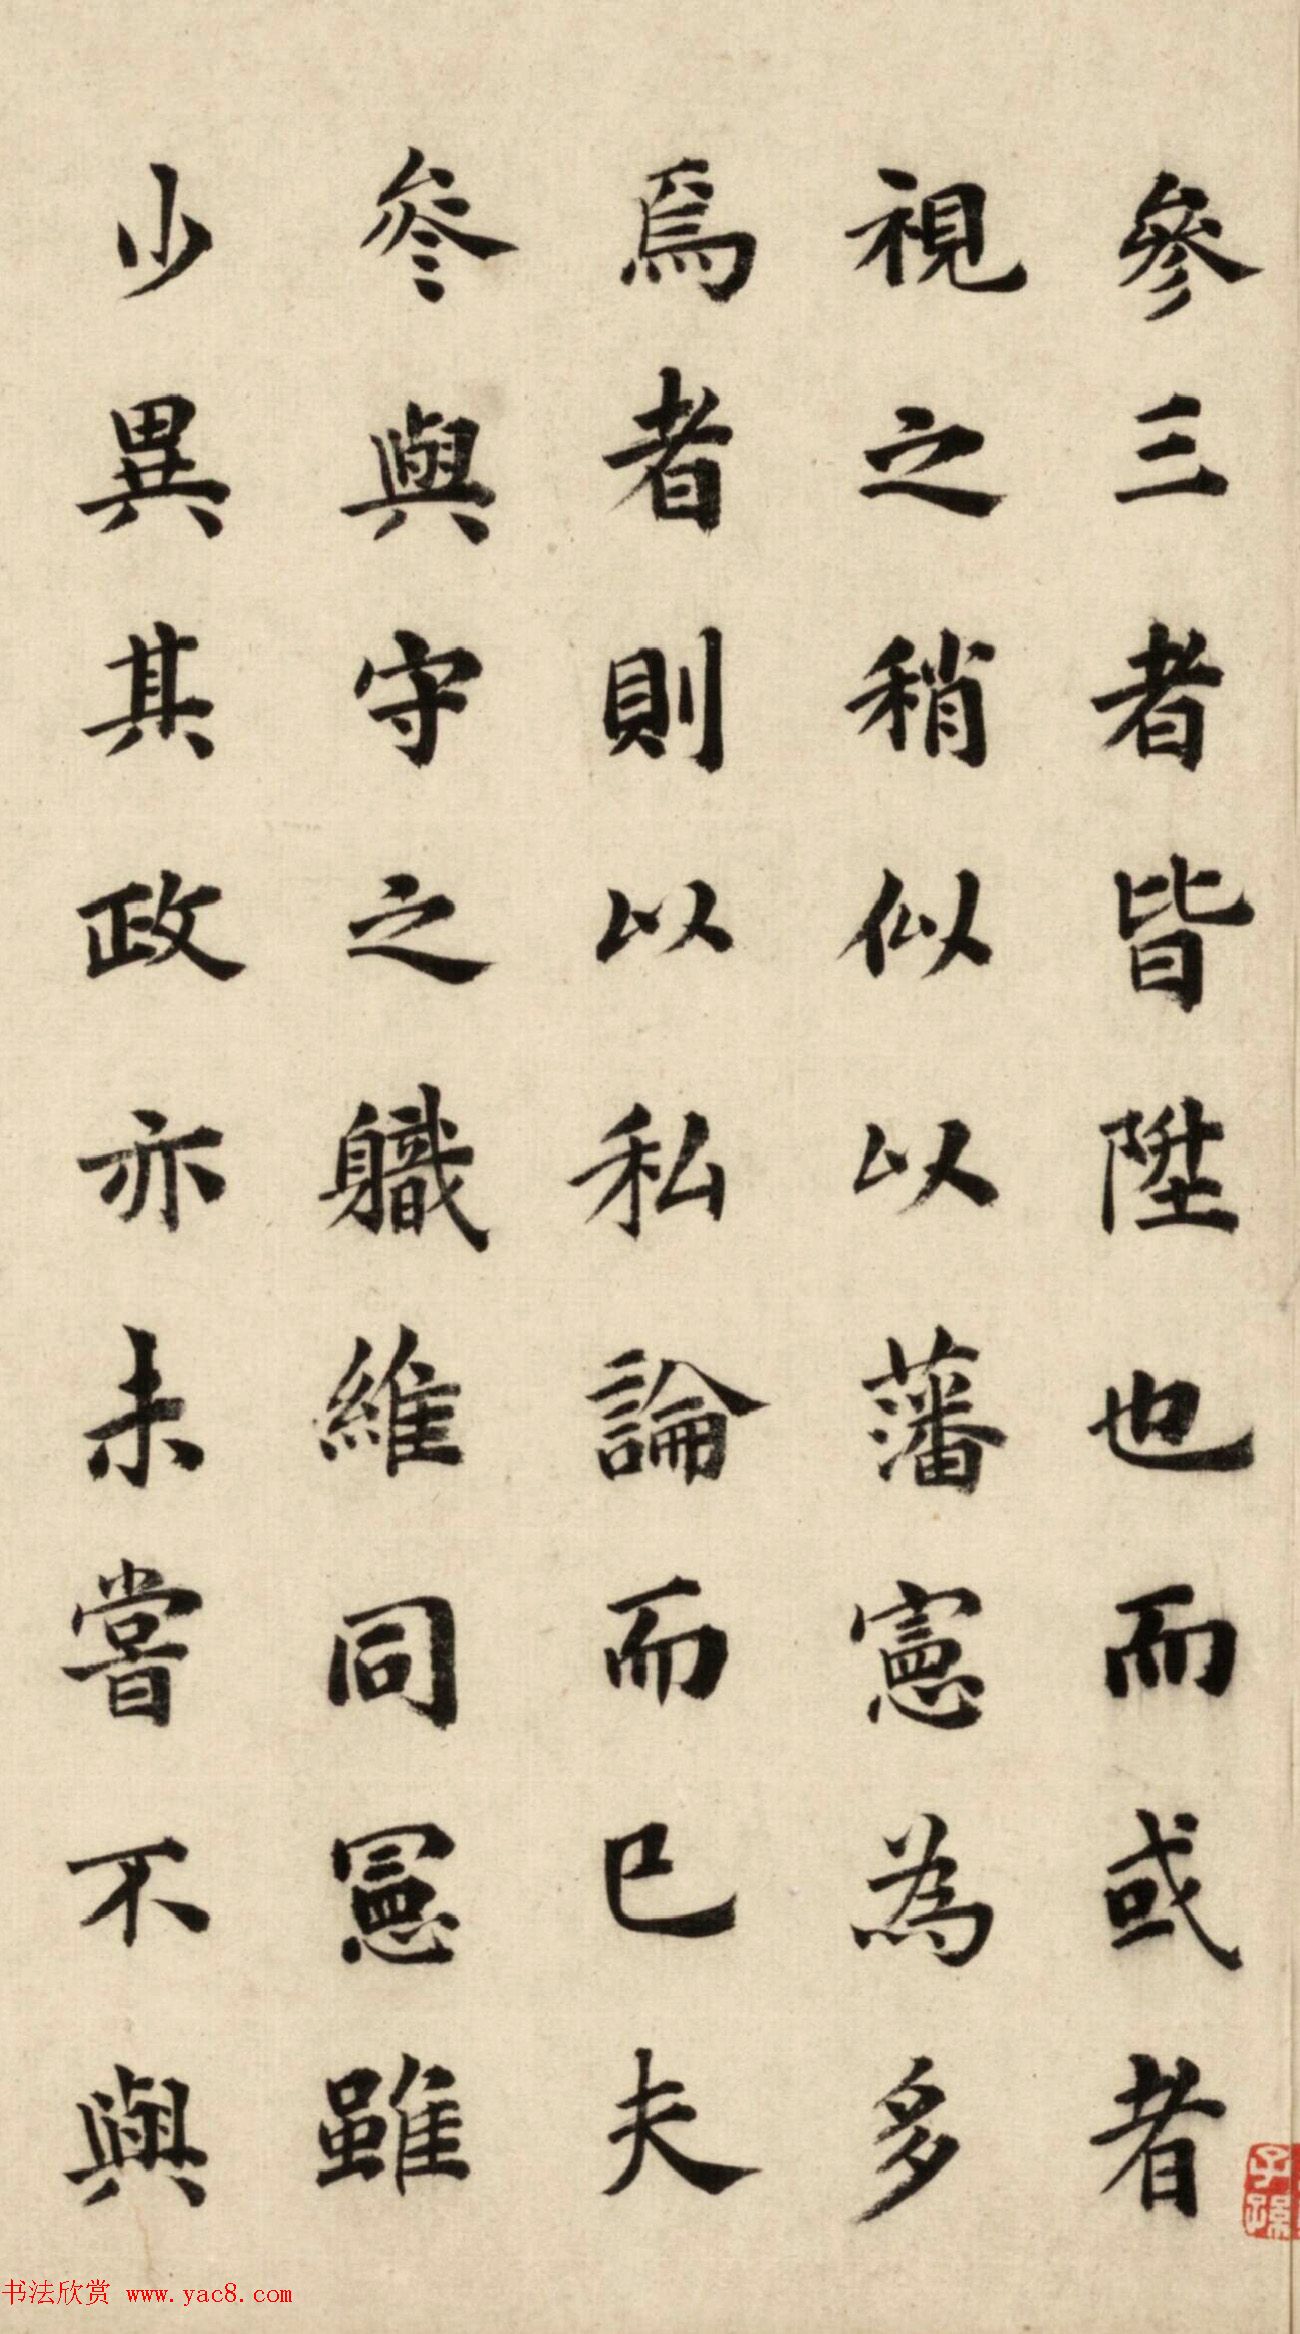 參三者皆陞也而或者
視之稍似以藩憲為多
焉者則以私論而已夫
参與守之軄維同憲雖
少異其政亦未嘗不與
书法欣赏 www.yac8.com